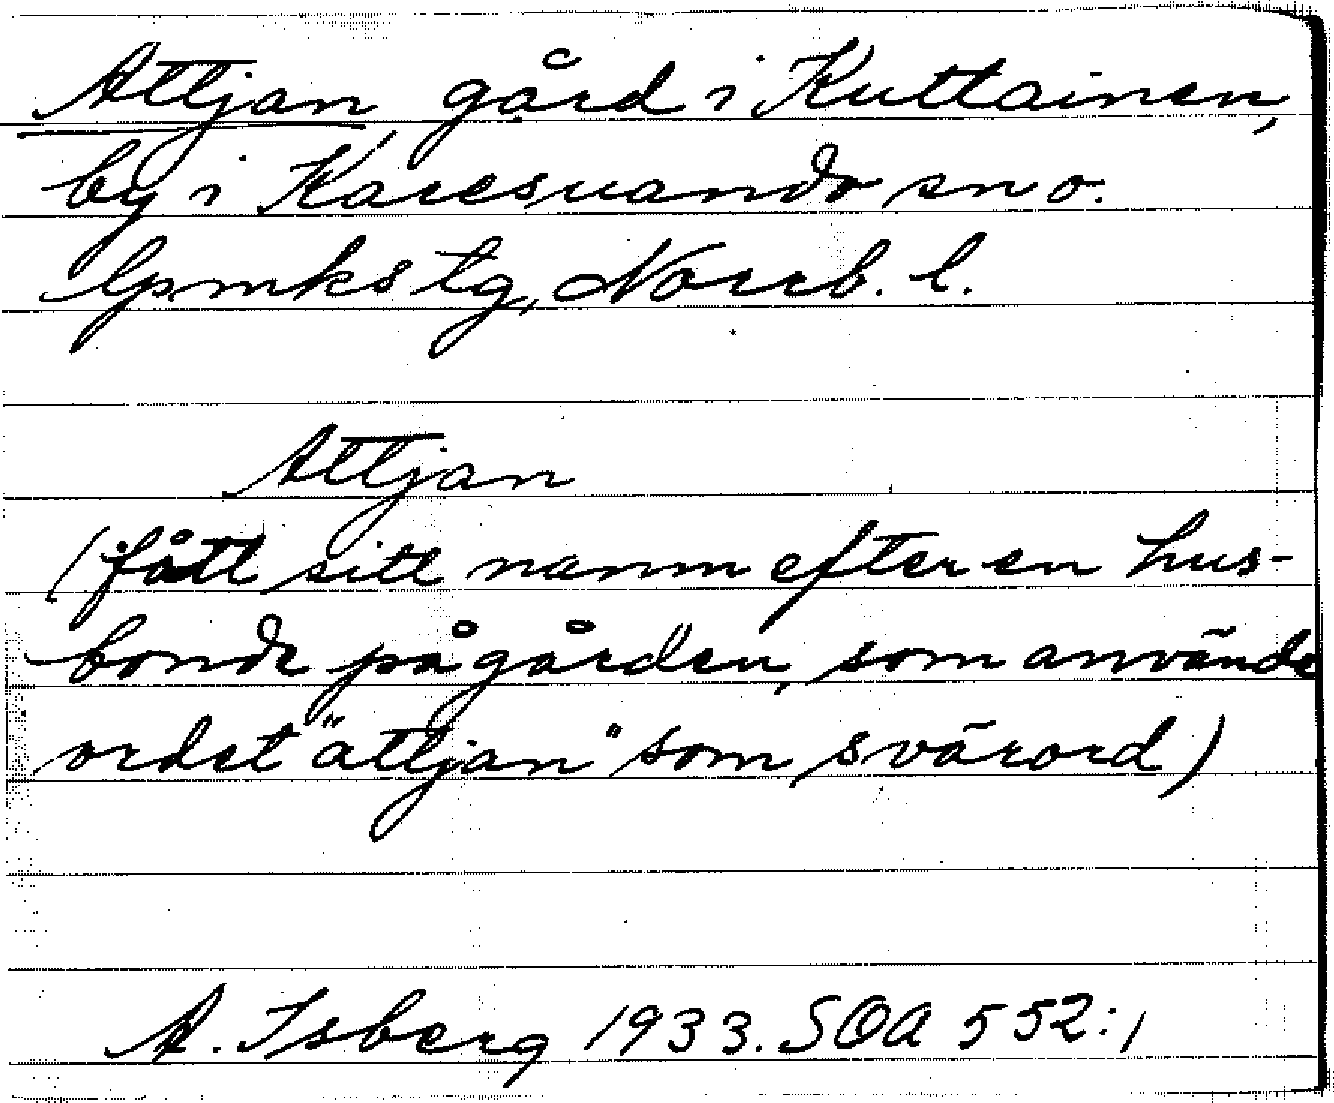 Attjan, gård i Kuttainen,
by i Karesuando sn o.
lpmks tg, Norrb. l.
Attjan
(fått sitt namn efter en hus-
bonde på gården, som använde
ordet "attjan" som svärord)
A. Isberg 1933. SOA 552:1